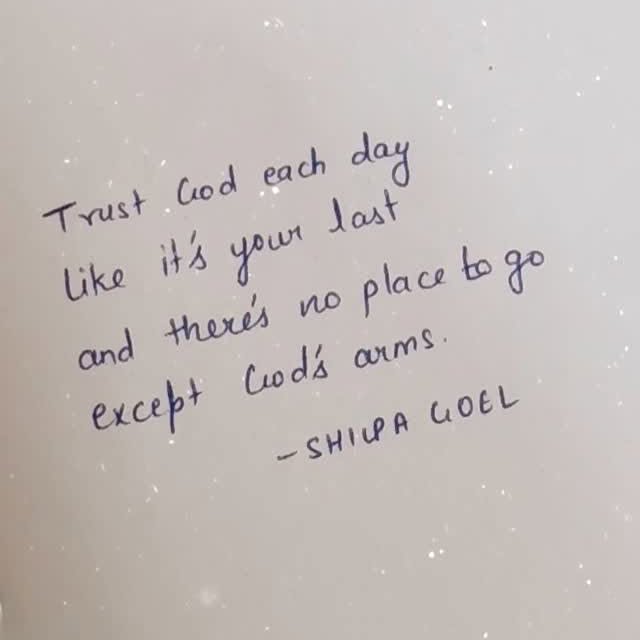 Trust God each day
like it's your last
and there's no place to go
except God's arms.
- SHILPA GOEL